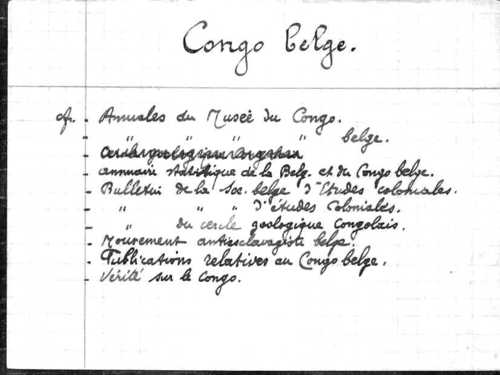 Congo belge.
cf. - Annales du Musée du Congo.
- " " " " belge.
- annuaire statistique de la Belg. et du Congo belge.
- Bulletin de la Soc. belge d'Etudes coloniales.
- " " " d'études coloniales.
- " du cercle géologique Congolais.
- Mouvement antiesclavagiste belge.
- Publications relatives au Congo belge.
- Vérité sur le Congo.